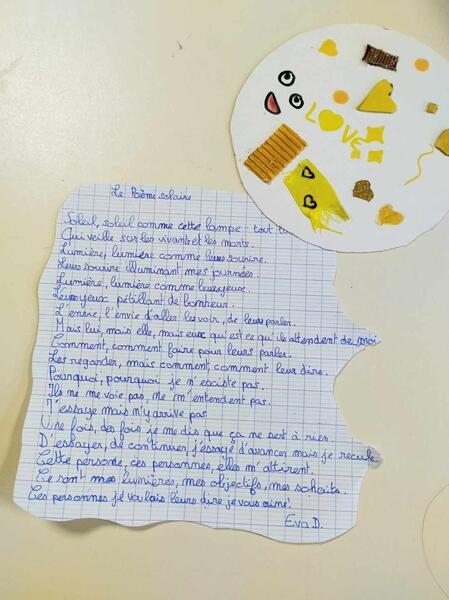 LOVE
Le Poème solaire
Soleil, soleil comme cette lampe tout
Qui veille sur les vivants et les morts.
Lumière, lumière comme leur sourire.
Leur sourire illuminant mes journées.
Lumière, lumière comme leur yeux.
Leur yeux pétillant de bonheur.
L'envie, l'envie d'aller les voir, de leur parler.
Mais lui, mais elle, mais eux qu'est ce qu'ils attendent de moi
Comment, comment faire pour leurs parler.
Les regarder, mais comment, comment leur dire.
Pourquoi, pourquoi je n'existe pas.
Ils ne me voie pas, ne m'entendent pas.
J'essaye mais n'y arrive pas
Une fois, des fois je me dis que ça ne sert à rien.
D'essayer, de continuer, j'essaye d'avancer mais je recule
Cette persone, ces personnes, elles m'attirent.
Ce sont mes lumières, mes objectifs, mes souhaits.
Ces personnes je voulais leurs dire je vous aime!
Eva D.